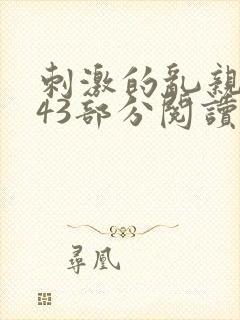 刺激的亂親
43部分閱讀
尋凰